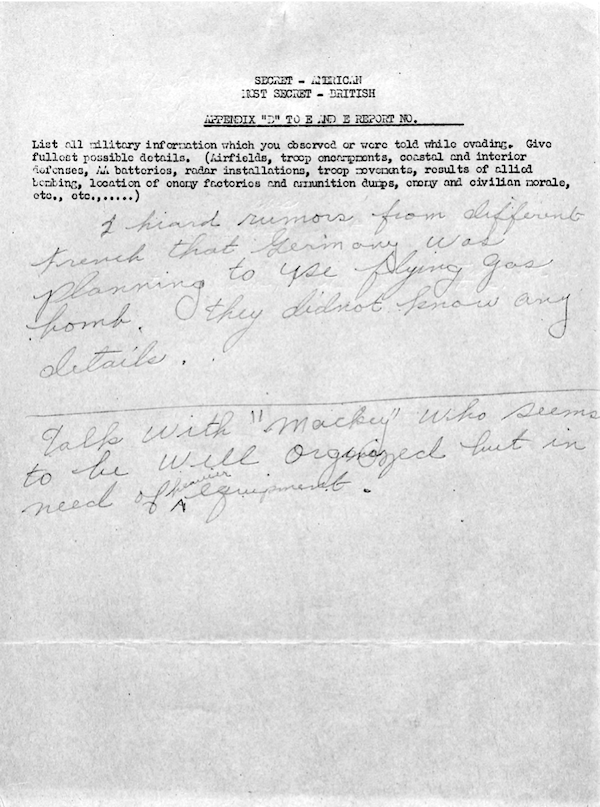 SECRET - AMERICAN
MOST SECRET - BRITISH
APPENDIX "D" TO E AND E REPORT NO.
List all military information which you observed or were told while evading. Give
fullest possible details. (Airfields, troop encampments, coastal and interior
defenses, AA batteries, radar installations, troop movements, results of allied
bombing, location of enemy factories and ammunition dumps, enemy and civilian morale,
etc., etc.,.....)
I hiard rumors from different
French that Germany was
planning to use flying gas
bomb. They didnot know any
details.
Talk with "Mackey" who seems
to be will orginized but in
need of heavier equipment.